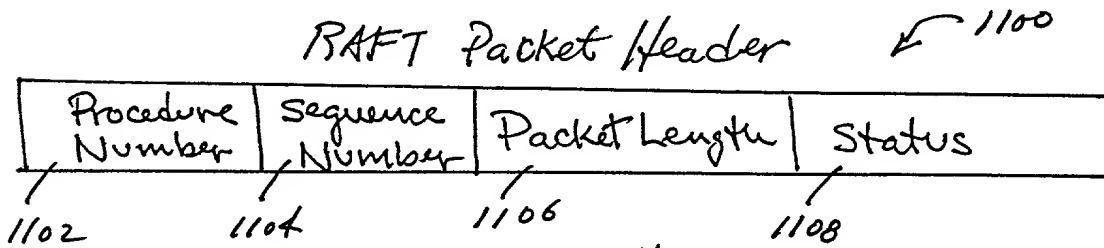 RAFT Packet Header
1100
Procedure Number
Sequence Number
Packet Length
Status
1102
1104
1106
1108